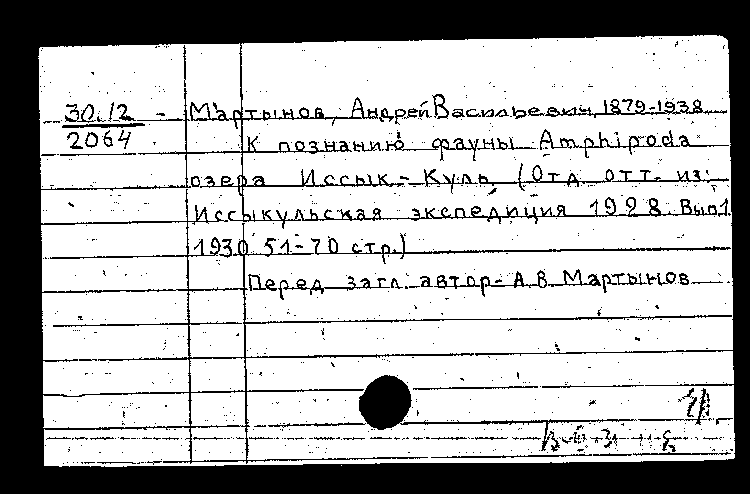 30.12 - Мартынов, Андрей Васильевич, 1879-1938
2064
К познанию фауны Amphipoda
озера Иссык-Куль. (Отд. отт. из:
Иссыкульская экспедиция 1928. Вып 1
1930 51-70 стр.)
Перед загл. автор- А.В. Мартынов